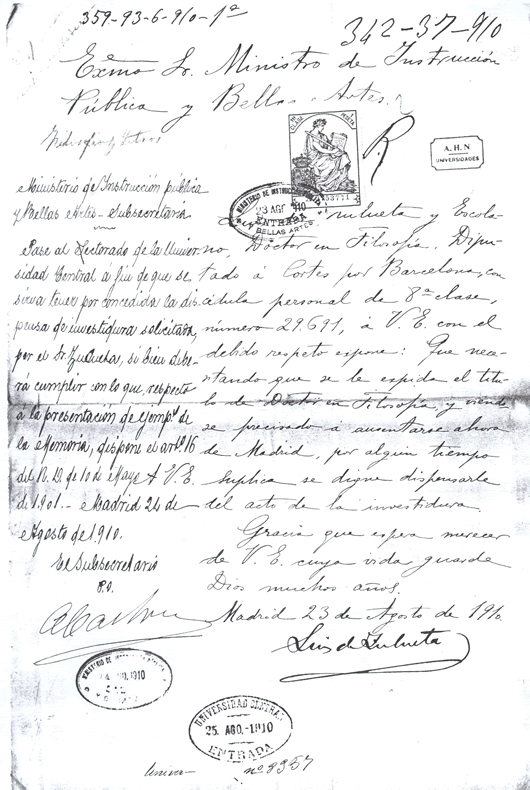 359-93-6-910-1ª
342-37-910
Exmo Sr. Ministro de Instrucción
Pública y Bellas Artes.
R
A.H.N
UNIVERSIDADES
CLASE
MINISTERIO DE INSTRUCCION PUBLICA
23 AGO 1910
ENTRADA
BELLAS ARTES
Zulueta y Escola-
no, Doctor en Filosofía, Dipu-
tado á Cortes por Barcelona, con
cédula personal de 8ª clase,
número 29.691, á V.E. con el
debido respeto expone: Que nece-
sitando que se le expida el títu-
lo de Doctor en Filosofía, y viendo-
se precisado á ausentarse ahora
de Madrid, por algún tiempo
A V.E. suplica se digne dispensarle
del acto de la investidura.
Gracia que espera merecer
de V.E. cuya vida guarde
Dios muchos años.
Madrid 23 de Agosto de 1910.
Luis de Zulueta
Ministerio de Instrucción pública
y Bellas Artes - Subsecretaría
Pase al Rectorado de la Univer-
sidad Central á fin de que se
sirva tener por concedida la dis-
pensa de investidura solicitada
por el Sr. Zulueta, si bien debe-
rá cumplir con lo que, respecto
á la presentación de ejempˢ de
la Memoria, dispone el artº 16
del R.D. de 10 de Mayo
de 1.901. - Madrid 24 de
Agosto de 1.910.
El Subsecretario
P.O.
MINISTERIO DE
1910
UNIVERSIDAD CENTRAL
25 AGO.-1910
ENTRADA
nº 8357